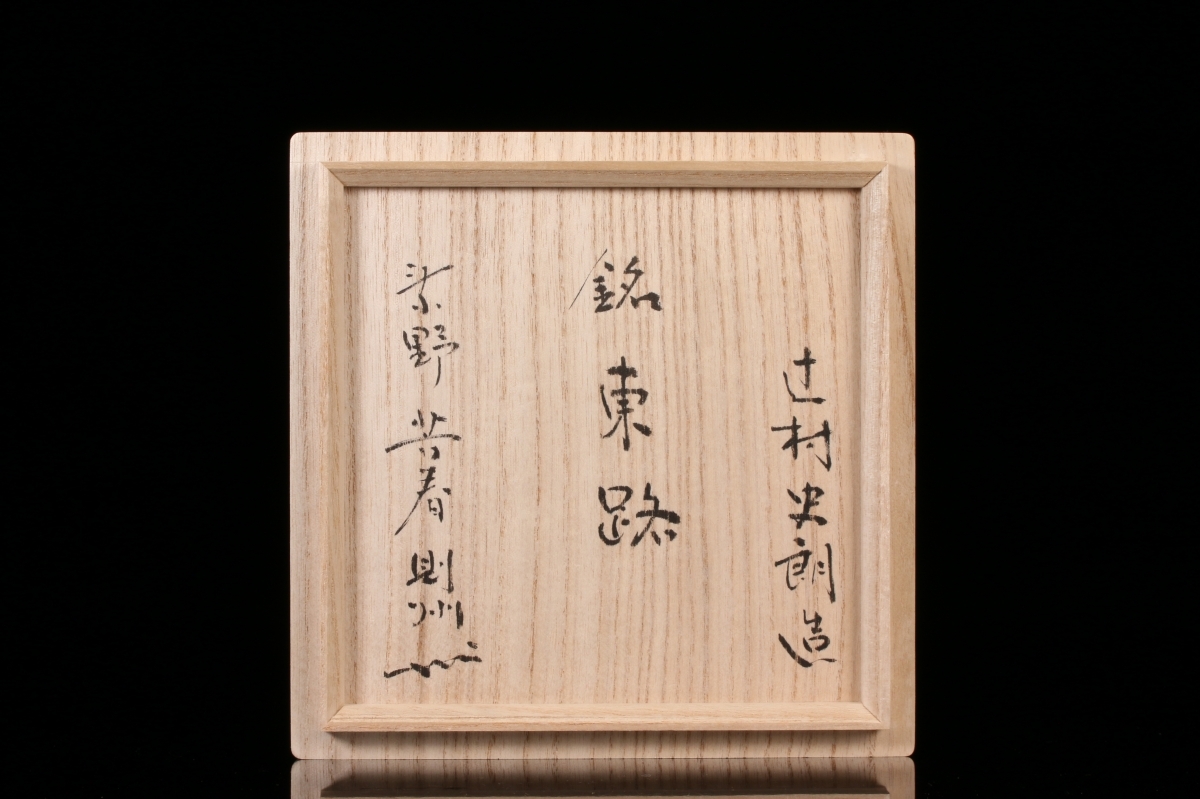 辻村史朗造
銘 東路
紫野 芳春 則州